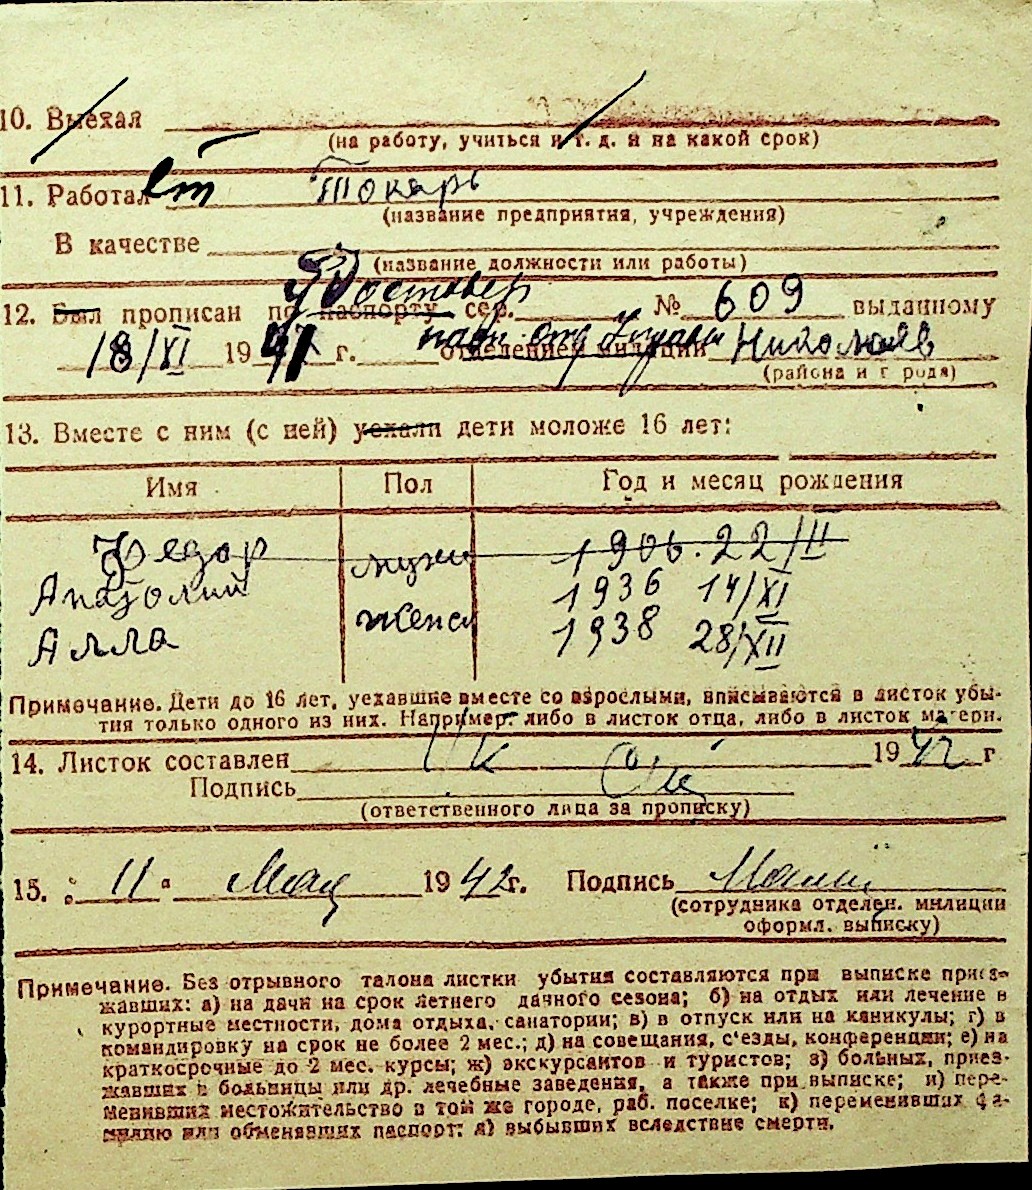 10. Выехал
(на работу, учиться и т. д. и на какой срок)
11. Работал ст Токарь
(название предприятия, учреждения)
В качестве
(название должности или работы)
12. Был прописан по паспорту Удостовер сер. № 609 выданному
18/XI 1941 г. отделением милиции Николаев
(района и города)
13. Вместе с ним (с ней) уехали дети моложе 16 лет:
Имя Пол Год и месяц рождения
Федор 1906. 22/II
Анатолий мужи 1936 14/XI
Алла женс 1938 28/XII
Примечание. Дети до 16 лет, уехавшие вместе со взрослыми, вписываются в листок убы-
тия только одного из них. Например: либо в листок отца, либо в листок матери.
14. Листок составлен 1942 г
Подпись
(ответственного лица за прописку)
15. „ 11 " Мая 1942 г. Подпись
(сотрудника отделен. милиции
оформл. выписку)
Примечание. Без отрывного талона листки убытия составляются при выписке приез-
жавших: а) на дачи на срок летнего дачного сезона; б) на отдых или лечение в
курортные местности, дома отдыха, санатории; в) в отпуск или на каникулы; г) в
командировку на срок не более 2 мес.; д) на совещания, с'езды, конференции; е) на
краткосрочные до 2 мес. курсы; ж) экскурсантов и туристов; з) больных, приез-
жавших в больницы или др. лечебные заведения, а также при выписке; и) пере-
менивших местожительство в том же городе, раб. поселке; к) переменивших фа-
милию или обменявших паспорт; л) выбывших вследствие смерти.